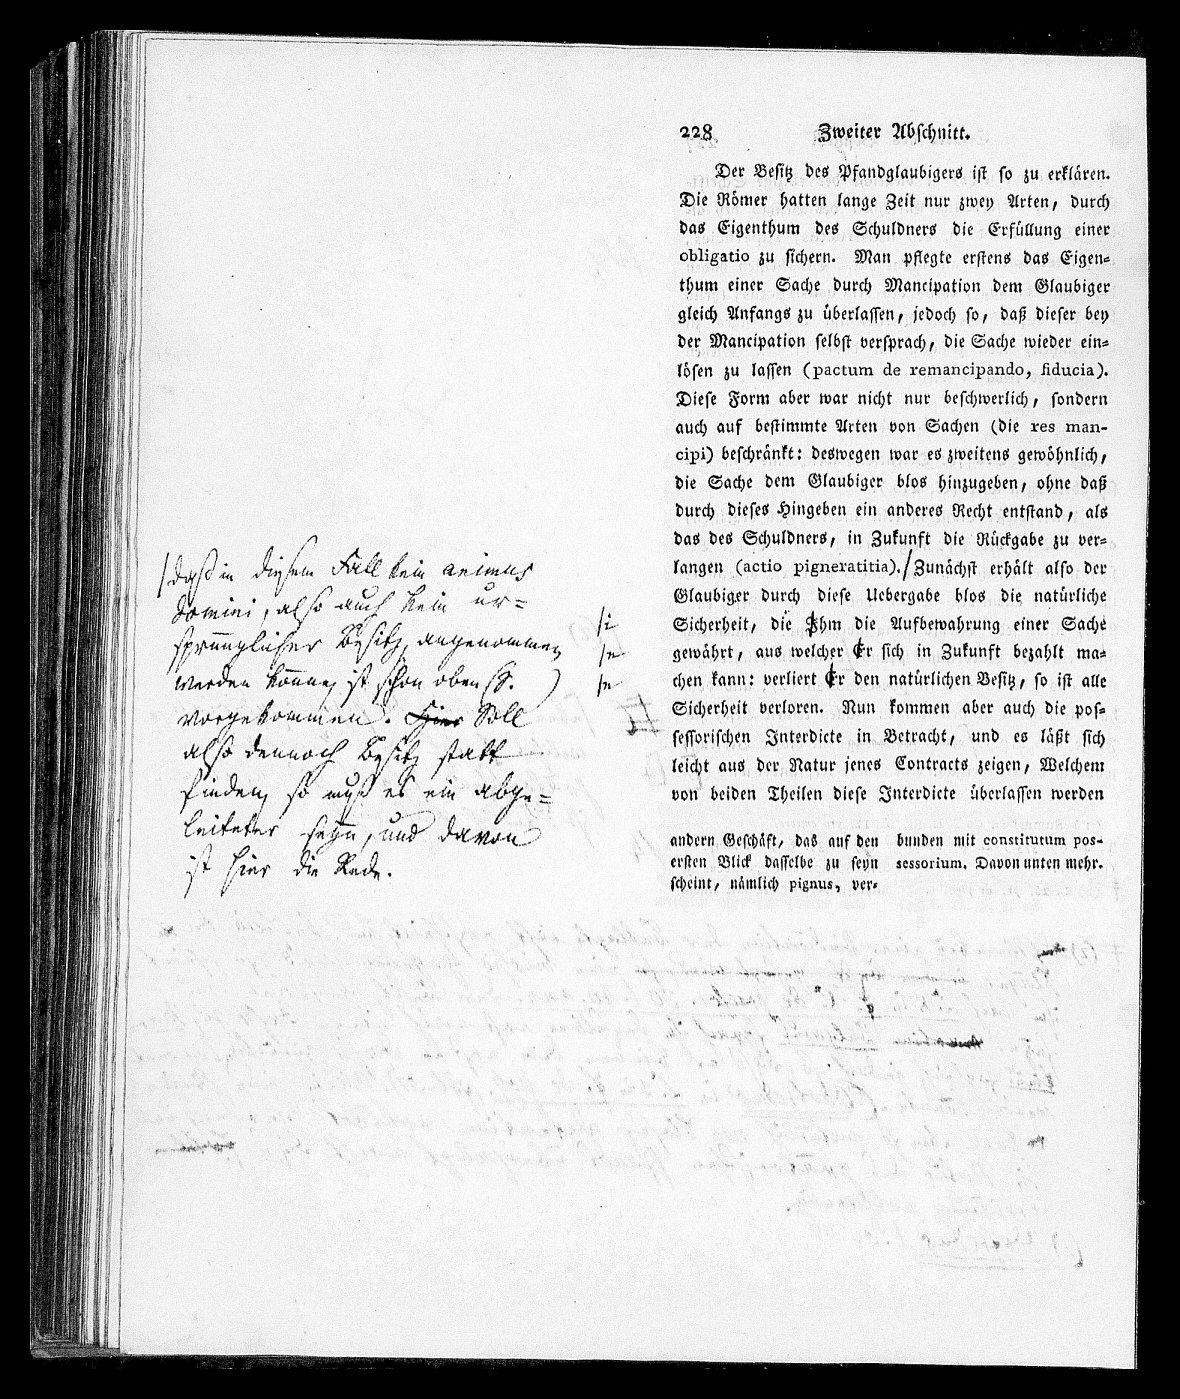 228 Zweiter Abschnitt.
Der Besitz des Pfandglaubigers ist so zu erklären.
Die Römer hatten lange Zeit nur zwey Arten, durch
das Eigenthum des Schuldners die Erfüllung einer
obligatio zu sichern. Man pflegte erstens das Eigen-
thum einer Sache durch Mancipation dem Glaubiger
gleich Anfangs zu überlassen, jedoch so, daß dieser bey
der Mancipation selbst versprach, die Sache wieder ein-
lösen zu lassen (pactum de remancipando, fiducia).
Diese Form aber war nicht nur beschwerlich, sondern
auch auf bestimmte Arten von Sachen (die res man-
cipi) beschränkt: deswegen war es zweitens gewöhnlich,
die Sache dem Glaubiger blos hinzugeben, ohne daß
durch dieses Hingeben ein anderes Recht entstand, als
das des Schuldners, in Zukunft die Rückgabe zu ver-
langen (actio pigneratitia)./ Zunächst erhält also der
Glaubiger durch diese Uebergabe blos die natürliche
Sicherheit, die Ihm die Aufbewahrung einer Sache
gewährt, aus welcher Er sich in Zukunft bezahlt ma-
chen kann: verliert Er den natürlichen Besitz, so ist alle
Sicherheit verloren. Nun kommen aber auch die pos-
sessorischen Interdicte in Betracht, und es läßt sich
leicht aus der Natur jenes Contracts zeigen, Welchem
von beiden Theilen diese Interdicte überlassen werden
andern Geschäft, das auf den
ersten Blick dasselbe zu seyn
scheint, nämlich pignus, ver-
bunden mit constitutum pos-
sessorium. Davon unten mehr.
/daß in diesem Fall kein animus
domini, also auch kein ur-
sprünglicher Besitz, angenommen
werden könne, ist schon oben (S. )
vorgekommen. Hier Soll
also dennoch Besitz statt
finden, so muß es ein abge-
leiteter seyn, und davon
ist hier die Rede.
/i
/e
/e